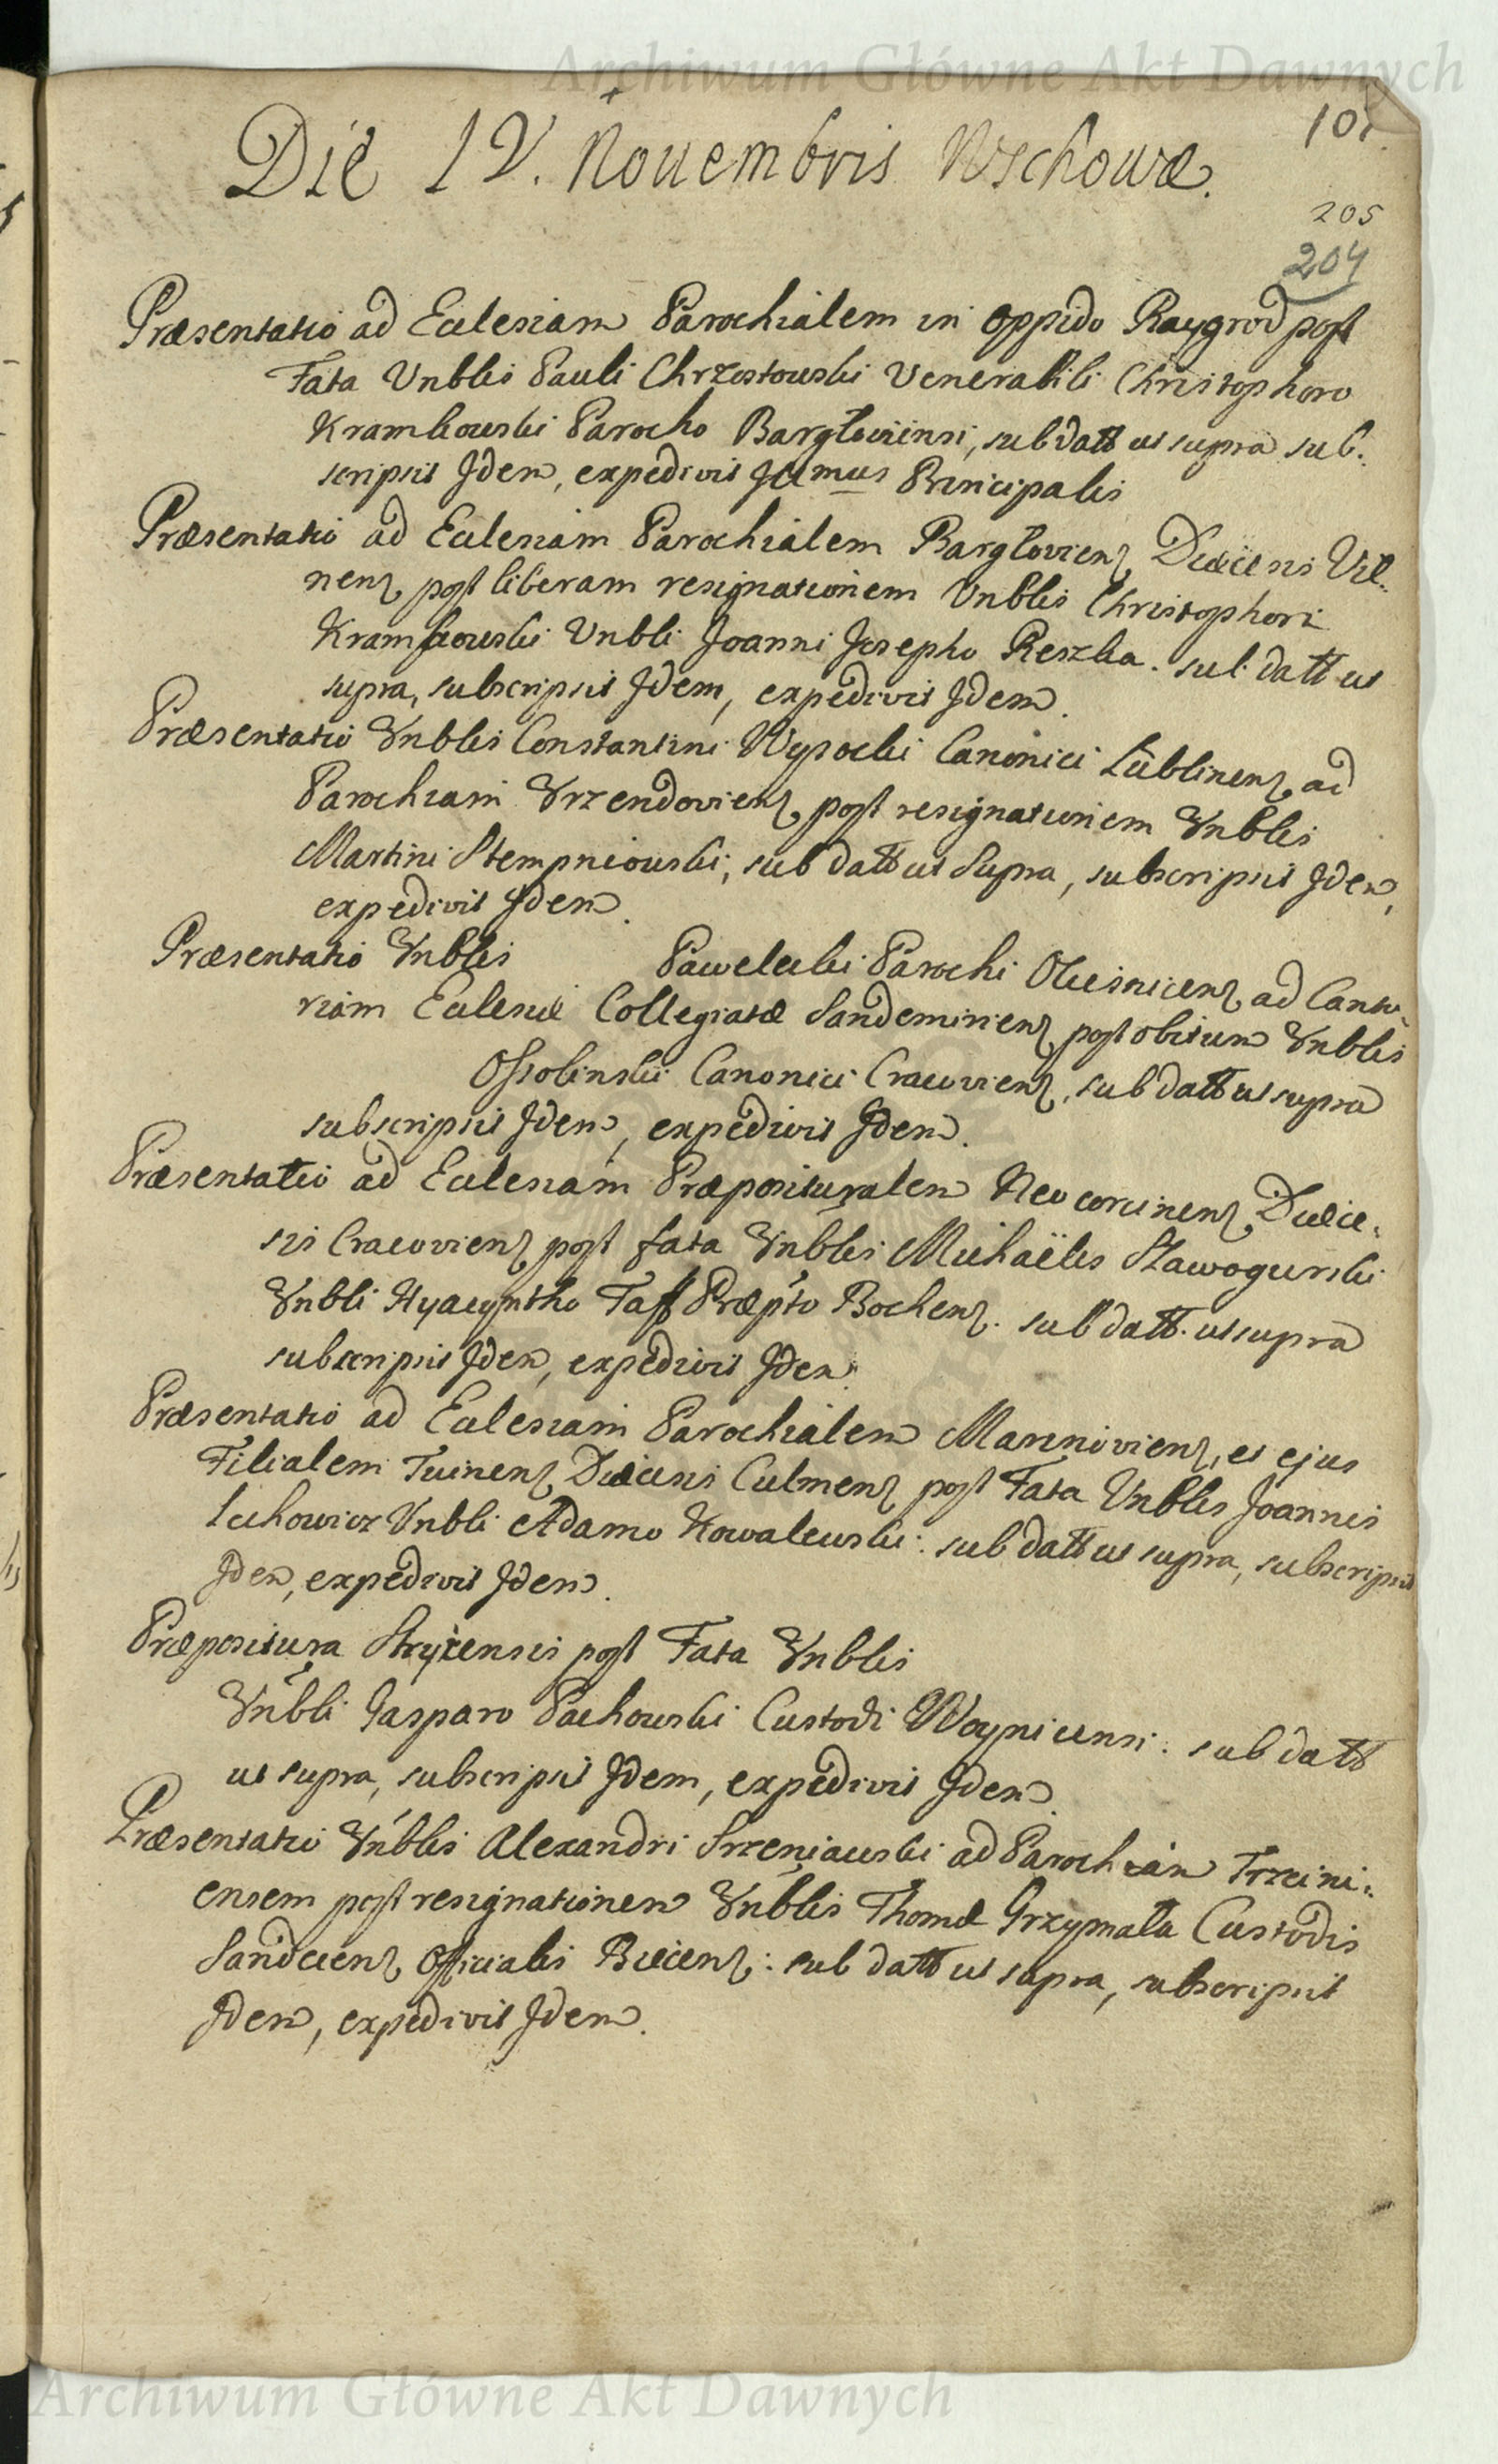 Archiwum Główne Akt Dawnych
101.
Die IV. Nouembris Wschouæ.
205
204
Præsentatio ad Eclesiam Parochialem in oppido Raygrod post
Fata Vnblis Pauli Chrzostouski Venerabili Christophoro
Kramkouski Parocho Bargłoviensi, sub datt ut supra sub:
scripsit Idem, expedivit Jllmus Principalis
Præsentatio ad Eclesiam Parochialem Bargłoviens Diæcesis Vil:
nens post liberam resignationem Vnblis Christophori
Kramkouski Vnbli Joanni Josepho Reszka. sub datt ut
supra, subscripsit Idem, expedivit Idem.
Præsentatio Vnblis Constantini Wysocki Canonici Lublinens ad
Parochiam Vrzendoviens post resignationem Vnblis
Martini Stempniouski, sub datt ut Supra, subscripsit Idem,
expedivit Idem.
Præsentatio Vnblis Pawelecki Parochi Olesnicens ad Canto:
riam Eclesiæ Collegiatæ Sandomiriens post obitum Vnblis
Ossolinski Canonici Cracoviens, sub datt ut supra
subscripsit Idem, expedivit Idem.
Præsentatio ad Eclesiam Præposituralem Neocorcinens Diæce:
sis Cracoviens post fata Vnblis Michaëlis Sławogurski
Vnbli Hyacyntho Taff Præpto Bochens. sub datt. ut supra
subscripsit Idem, expedivit Idem.
Præsentatio ad Eclesiam Parochialem Marnioviens, et ejus
Filialem Tuinens Diæcesis Culmens post Fata Vnblis Joannis
Lichowicz Vnbli Adamo Kowalewski: sub datt ut supra, subscripsit
Idem, expedivit Idem.
Præpositura Stryiensis post Fata Vnblis
Vnbli Gasparo Pachowski Custodi Woynicensi: sub datt
ut supra, subscripsit Idem, expedivit Idem.
Præsentatio Vnblis Alexandri Srzeniawski ad Parochiam Trzcini:
ensem post resignationem Vnblis Thomæ Grzymała Custodis
Sandecens Officialis Biecens: sub datt ut supra, subscripsit
Idem, expedivit Idem.
Archiwum Główne Akt Dawnych